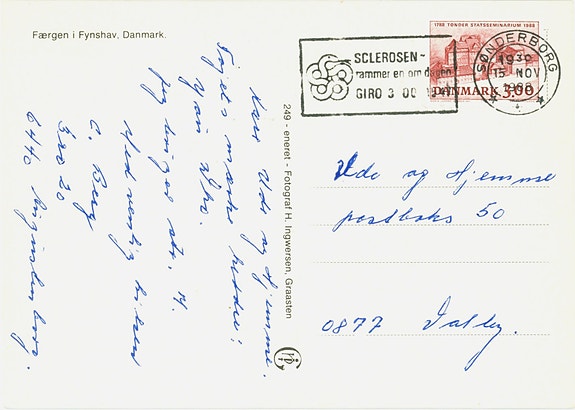 Færgen i Fynshav, Danmark.
1788 TØNDER STATSSEMINARIUM 1988
SCLEROSEN-
rammer en om dagen
GIRO 3 00
SØNDERBORG
1930
15 NOV
1988
DANMARK 3,00
249 - eneret - Fotograf H. Ingwersen, Graasten
Kære Ude og Hjemme.
Togets mærke hedder:
Jeg bruger str. 14.
Med venlig hilsen
C. Berg
6440 Augustenborg.
Ude og Hjemme
postboks 50
0877 Valby.